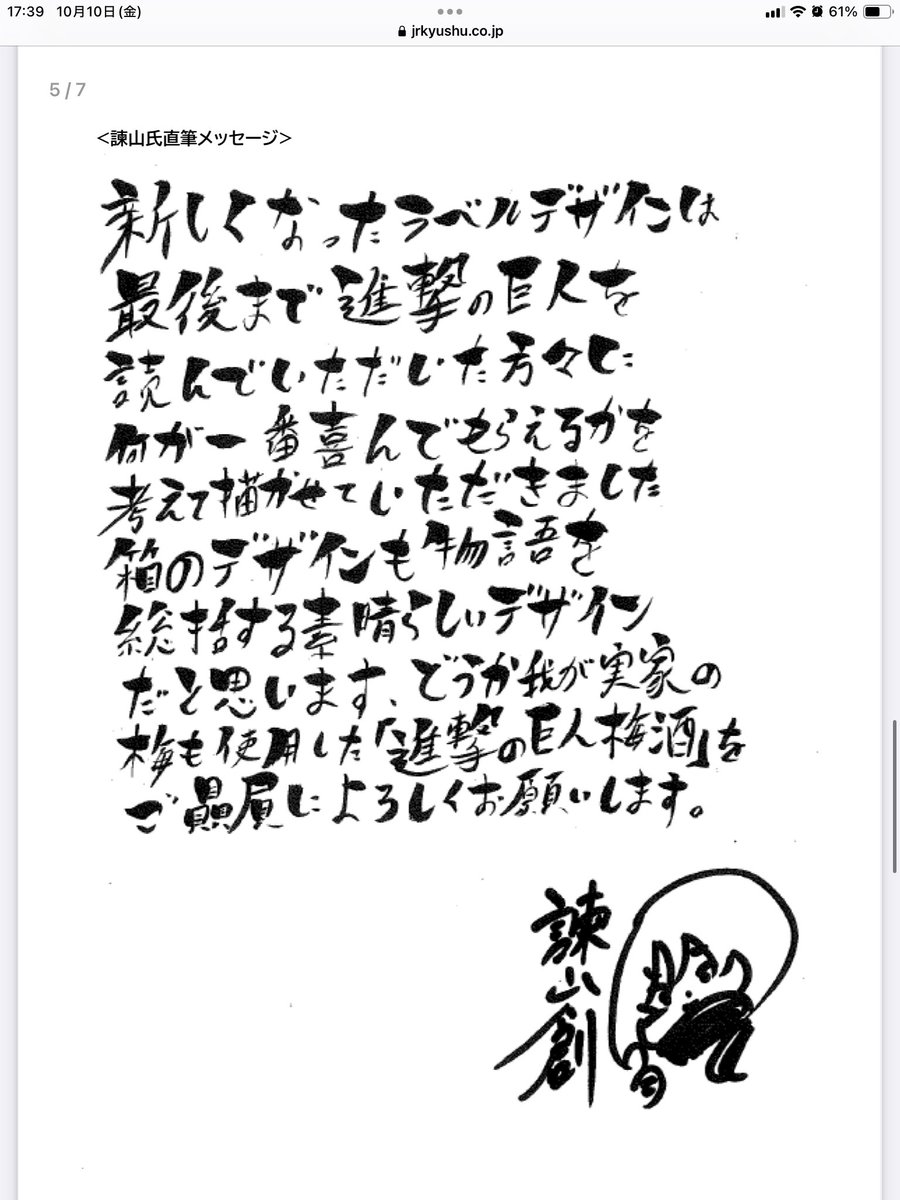 17:39 10月10日(金)
61%
jrkyushu.co.jp
5 / 7
<諫山氏直筆メッセージ>
新しくなったラベルデザインは
最後まで進撃の巨人を
読んでいただいた方々に
何が一番喜んでもらえるかを
考えて描かせていただきました
箱のデザインも物語を
総括する素晴らしいデザイン
だと思います、どうか我が実家の
梅も使用した「進撃の巨人梅酒」を
ご贔屓によろしくお願いします。
諫山創